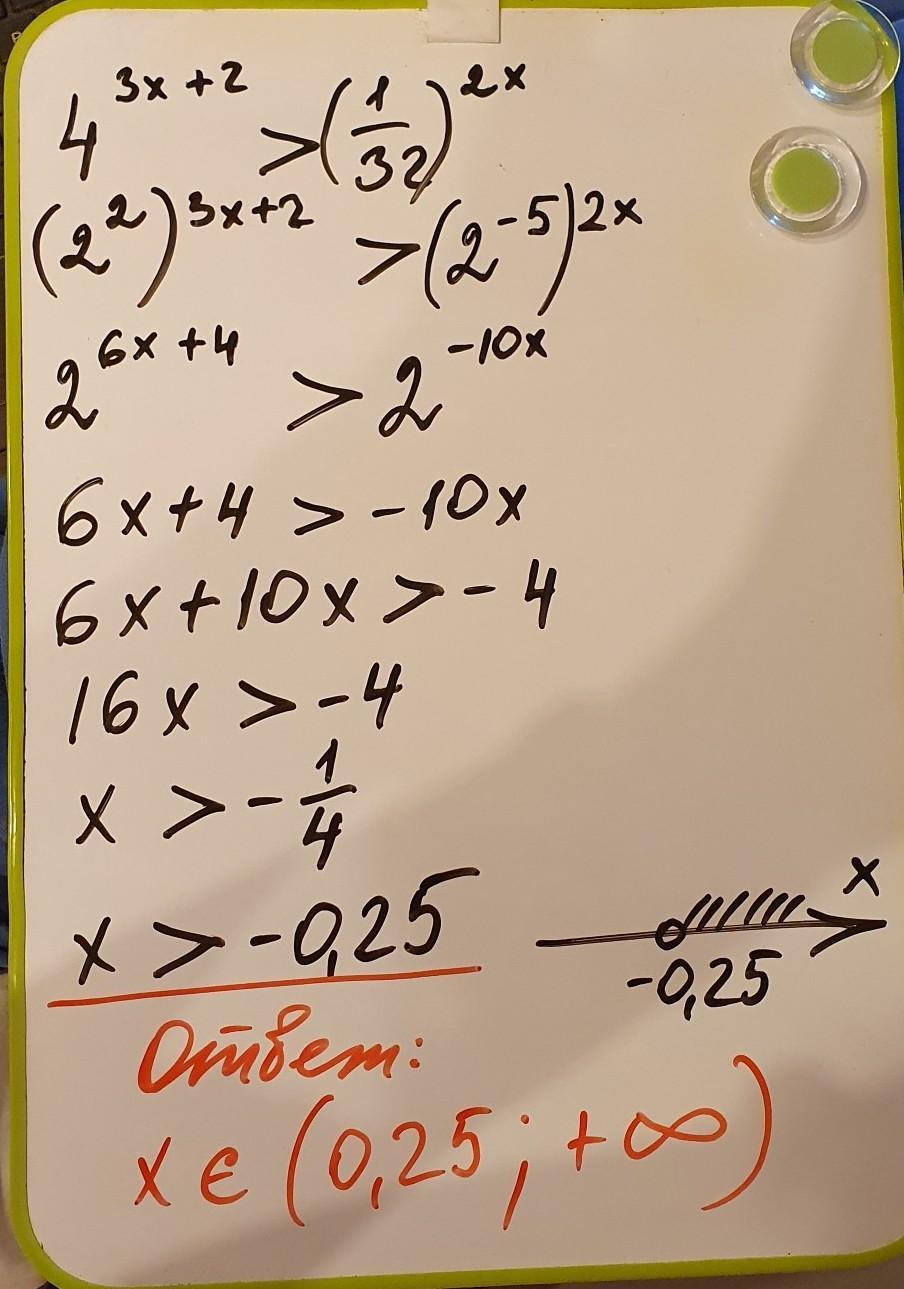 4^(3x+2) > (1/32)^(2x)
(2^2)^(3x+2) > (2^(-5))^(2x)
2^(6x+4) > 2^(-10x)
6x+4 > -10x
6x+10x > -4
16x > -4
x > -1/4
x > -0,25
x
-0,25
Ответ:
x ∈ (0,25; +∞)